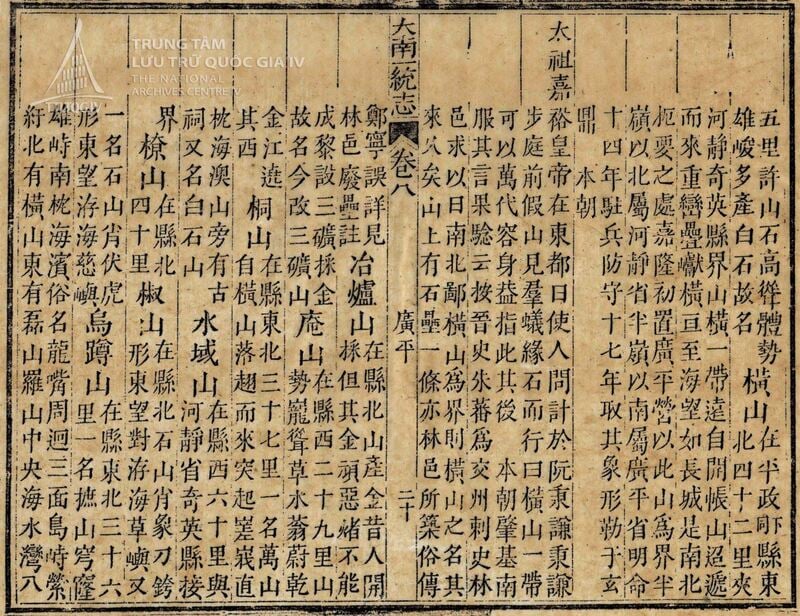 TRUNG TÂM
LƯU TRỮ QUỐC GIA IV
THE NATIONAL
ARCHIVES CENTRE IV
TTLTQGIV
五里許山石高聳體勢
雄峻多產白石故名
橫山
在平政司縣東
北四十二里夾
河靜奇英縣界山橫一帶遠自開帳山迢遞
而來重巒疊巘橫亘至海望如長城是南北
扼要之處嘉隆初置廣平營以此山爲界半
嶺以北屬河靜省半嶺以南屬廣平省明命
十四年駐兵防守十七年取其象形勒于玄
鼎 本朝
太祖嘉裕皇帝在東都日使人問計於阮秉謙秉謙
步庭前假山見羣蟻緣石而行曰橫山一帶
可以萬代容身益指此其後 本朝肇基南
服其言果驗云按晉史朱蕃爲交州刺史林
邑求以日南北鄙橫山爲界則橫山之名其
來久矣山上有石壘一條亦林邑所築俗傳
大南一統志 卷八 廣平 二十
鄭寧誤詳見
林邑廢壘註
冶爐山
在縣北山產金昔人開
採但其金頑惡猪不能
成黎設三礦採金
故名今改三礦山
庵山
在縣西二十九里山
勢巃聳草水蓊蔚乾
金江遶
其西
桐山
在縣東北三十七里一名萬山
自橫山落趐而來突起嵳峩直
枕海澳山旁有古
祠又名白石山
水域山
在縣西六十里與
河靜省奇英縣接
界
山
在縣北
四十里
椒山
在縣北石山肖象刀銙
形東望對洊海草嶼又
一名石山肖伏虎
形東望洊海慈嶼
烏蹲山
在縣東北三十六
里一名摭山穹窿
雄峙南枕海濱俗名龍嘴周迴三面島峙縈
紆北有橫山東有磊山羅山中央海水灣八